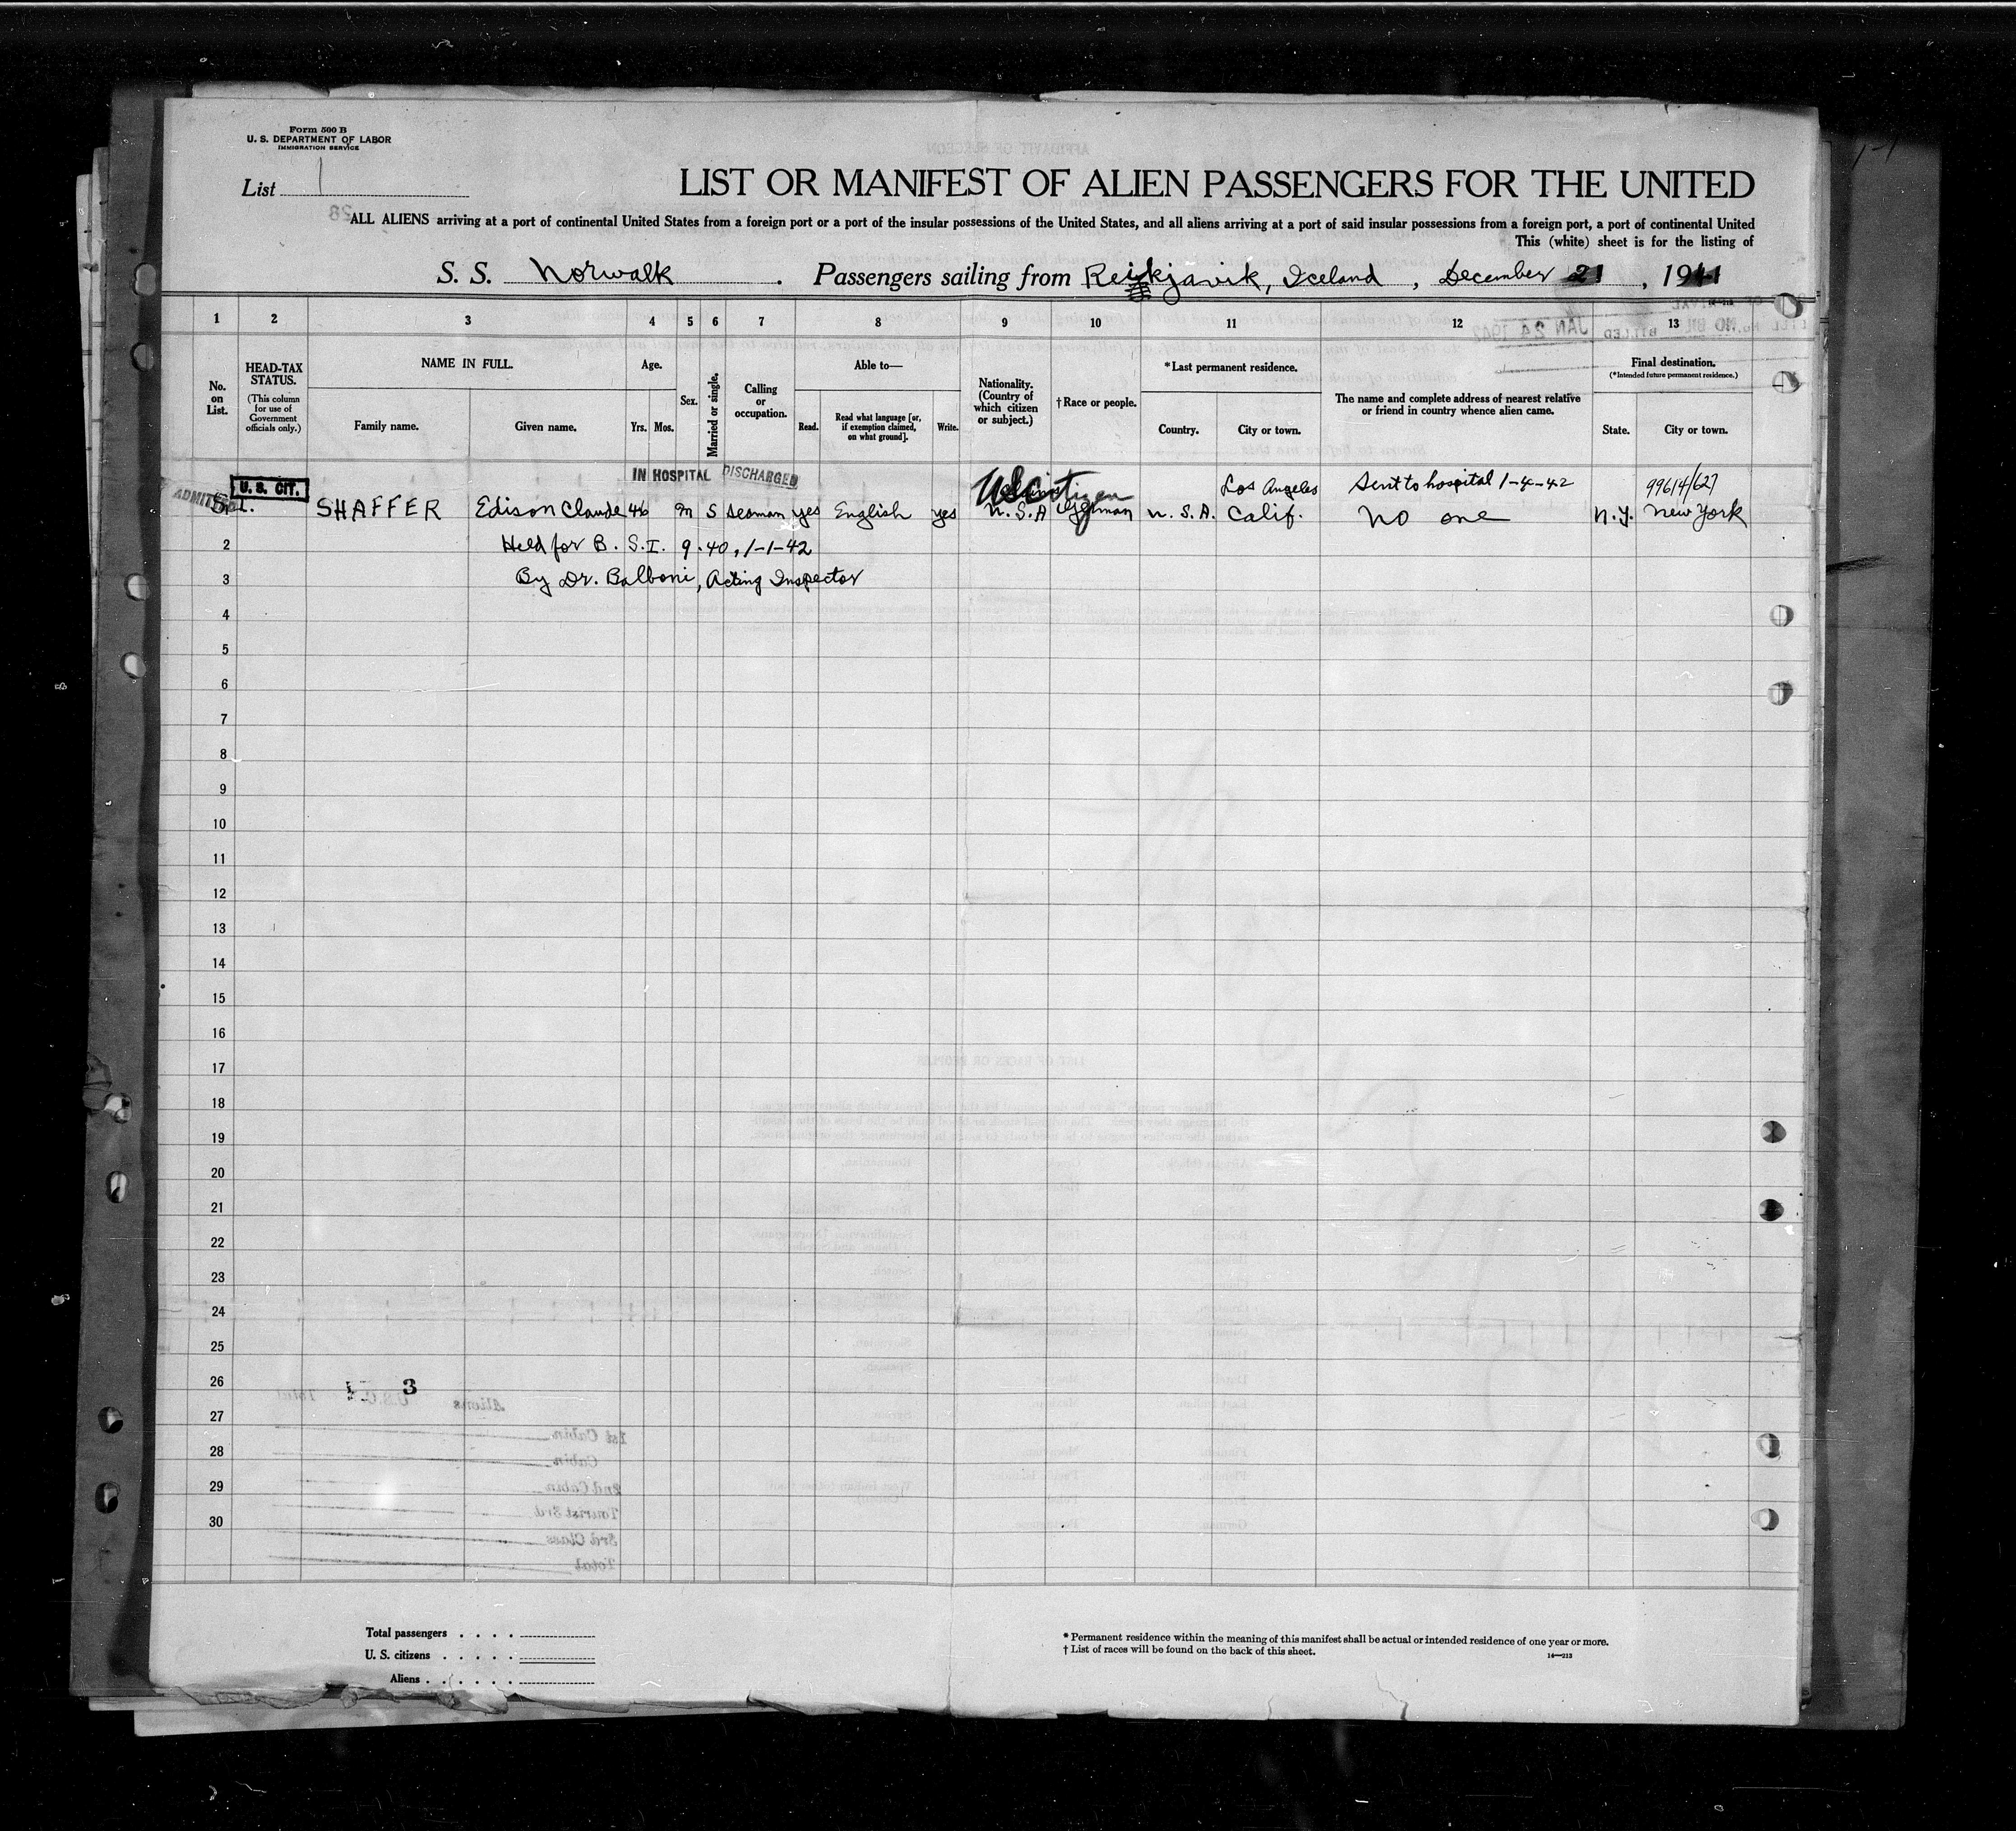 Form 500 B
U. S. DEPARTMENT OF LABOR
IMMIGRATION SERVICE
List 1
LIST OR MANIFEST OF ALIEN PASSENGERS FOR THE UNITED
ALL ALIENS arriving at a port of continental United States from a foreign port or a port of the insular possessions of the United States, and all aliens arriving at a port of said insular possessions from a foreign port, a port of continental United
This (white) sheet is for the listing of
S. S. Norwalk. Passengers sailing from Reikjavik, Iceland, December 21, 1941
1 2 3 4 5 6 7 8 9 10 11 12 13
No. on List.
HEAD-TAX STATUS.
(This column for use of Government officials only.)
NAME IN FULL.
Family name. Given name.
Age.
Yrs. Mos.
Sex.
Married or single.
Calling or occupation.
Able to—
Read. Read what language [or, if exemption claimed, on what ground]. Write.
Nationality. (Country of which citizen or subject.)
†Race or people.
*Last permanent residence.
Country. City or town.
The name and complete address of nearest relative or friend in country whence alien came.
Final destination.
(*Intended future permanent residence.)
State. City or town.
IN HOSPITAL DISCHARGED
ADMITTED U. S. CIT. US Citizen Los Angeles Sent to hospital 1-4-42 99614/627
1. SHAFFER Edison Claude 46 M S Seaman yes English yes U.S.A German U.S.A. Calif. No one N.Y. New York
2 Held for B.S.I. 9.40, 1-1-42
3 By Dr. Balboni, Acting Inspector
4
5
6
7
8
9
10
11
12
13
14
15
16
17
18
19
20
21
22
23
24
25
26 3
27
28
29
30
Total passengers . . . .
U. S. citizens . . . . .
Aliens . . . . . .
* Permanent residence within the meaning of this manifest shall be actual or intended residence of one year or more.
† List of races will be found on the back of this sheet.
14—213